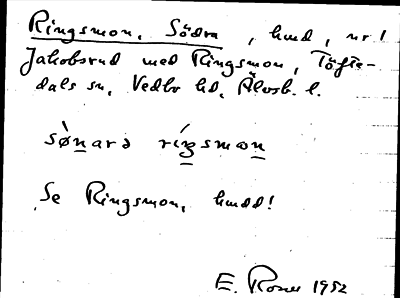 Ringsmon, Södra, hmd, nr 1
Jakobsrud med Ringsmon, Töfte-
dals sn, Vedbo hd, Älvsb. l.
sø̀narə ríŋsmon
Se Ringsmon, hmdd!
E. Rones 1952